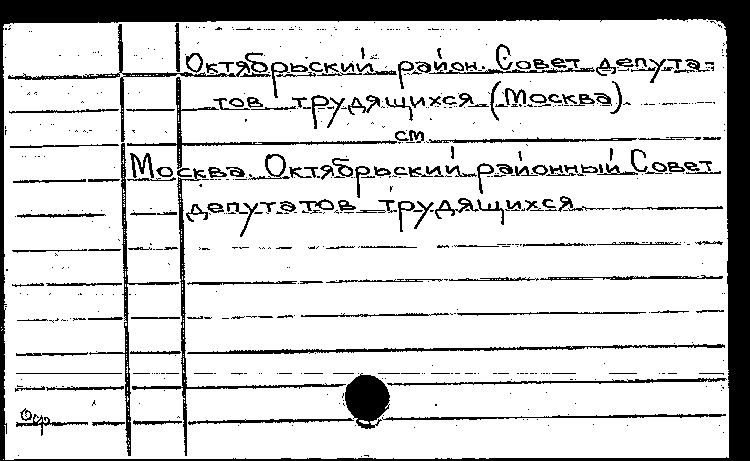 Октябрьский район. Совет депута-
тов трудящихся (Москва).
см
Москва. Октябрьский районный Совет
депутатов трудящихся.